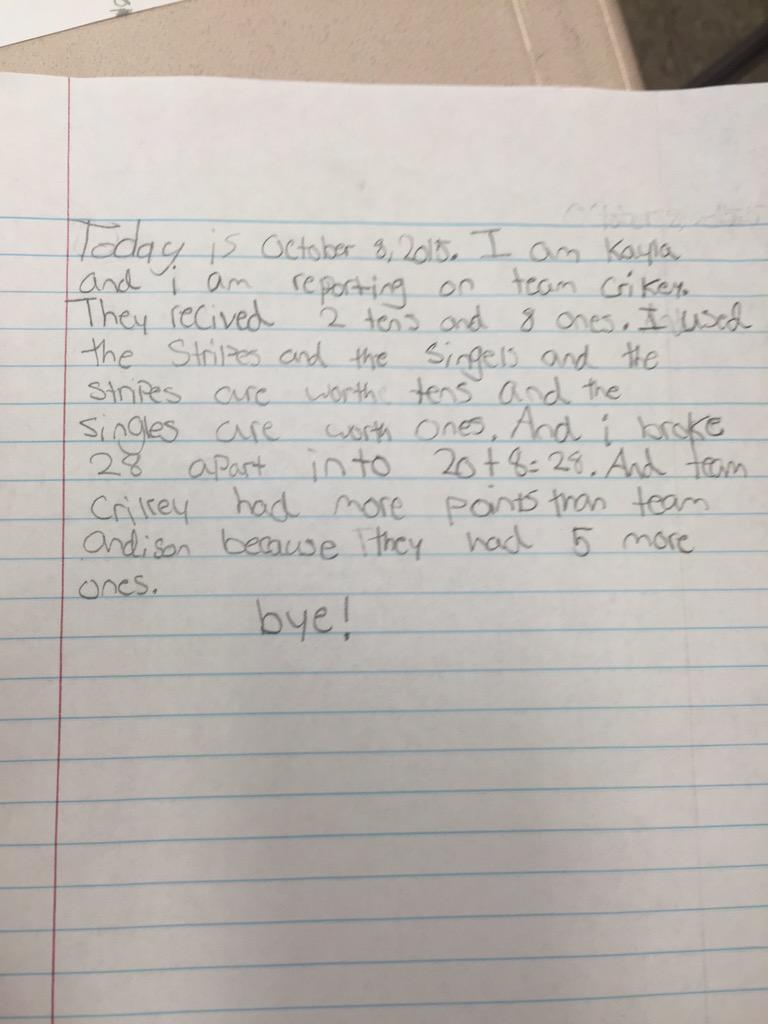 Today is October 8, 2015. I am Kayla
and i am reporting on team Crikey.
They recived 2 tens and 8 ones. I used
the Stripes and the Singels and the
Stripes are worth tens and the
Singles are worth ones. And i broke
28 apart into 20+8=28. And team
Crikey had more points than team
andison because they had 5 more
ones.
bye!